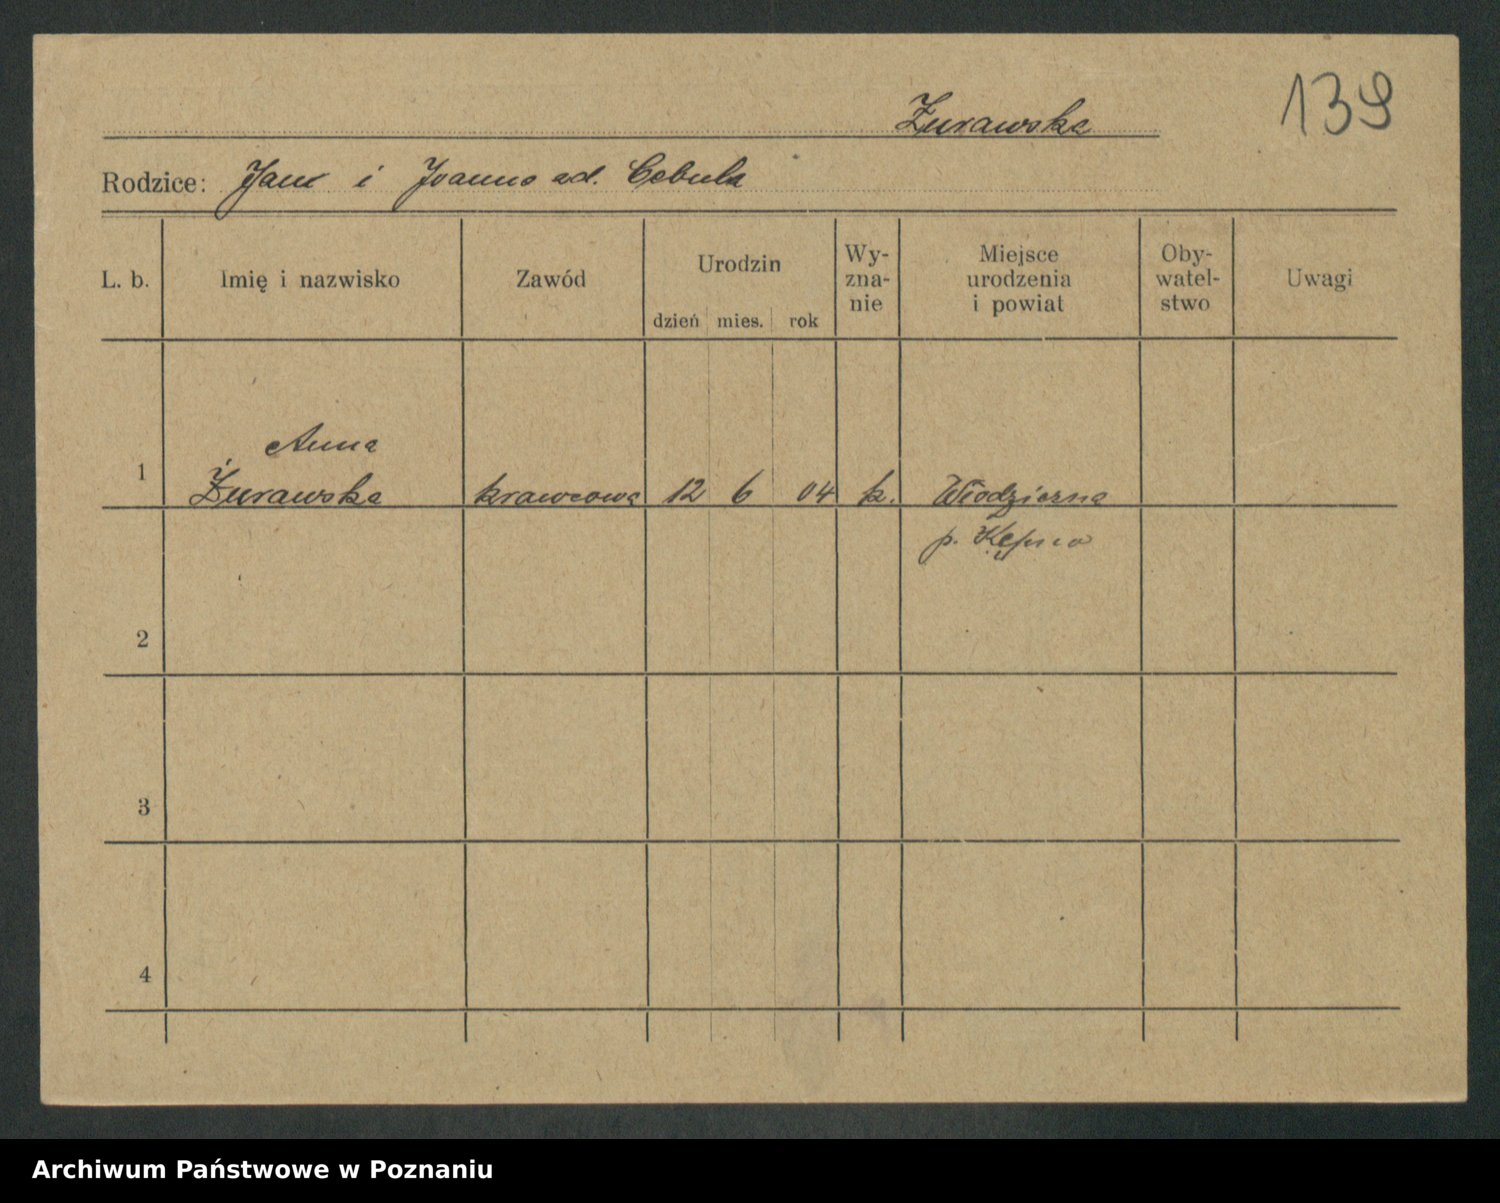 139
Żurawska
Rodzice: Jan i Joanna zd. Cebula
L. b. Imię i nazwisko Zawód Urodzin dzień mies. rok Wy-zna-nie Miejsce urodzenia i powiat Oby-watel-stwo Uwagi
Anna
1 Żurawska krawcowa 12 6 04 k.
p. Kępno
2
3
4
Archiwum Państwowe w Poznaniu